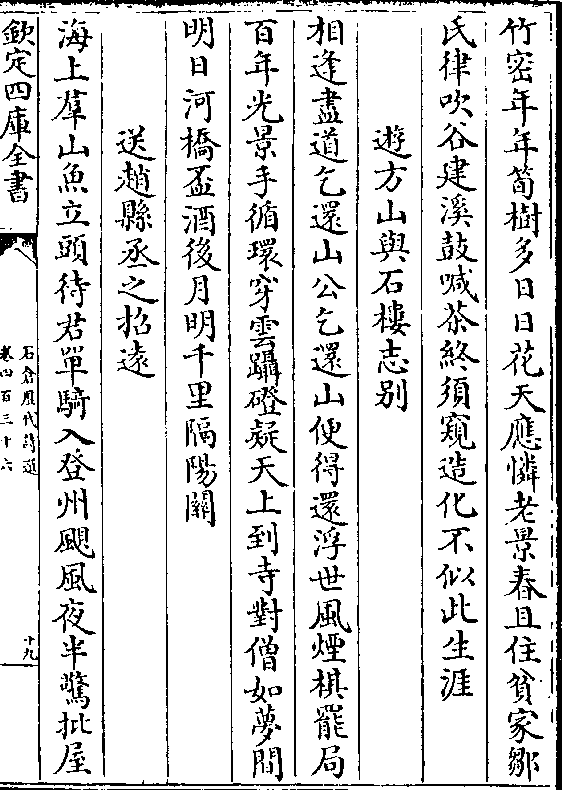 竹密年年筍樹多日日花天應憐老景春且住貧家鄒
氏律吹谷建溪鼓喊茶終須窺造化不似此生涯
遊方山與石樓志别
相逢盡道乞還山公乞還山便得還浮世風煙棋罷局
百年光景手循環穿雲躡磴疑天上到寺對僧如夢間
明日河橋盃酒後月明千里隔陽關
送趙縣丞之招遠
海上羣山魚立頭待君單騎入登州颶風夜半驚批屋
欽定四庫全書
石倉歴代詩選
卷四百三十六
十九